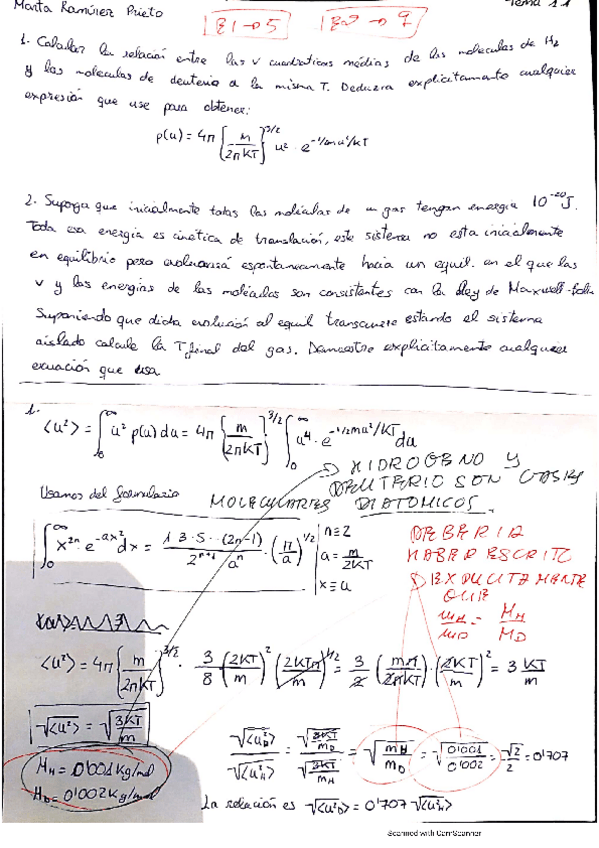 Marta Ramírez Prieto
Tema 11
E1 → 5
E2 → 9
1. Calcular la relación entre las v cuadráticas medias de las moleculas de H₂
y las moleculas de deuterio a la misma T. Deduzca explicitamente cualquier
expresión que use para obtener:
p(u) = 4π [m/2πKT]^3/2 u² · e^-1/2mu²/KT
2. Suponga que inicialmente todas las moléculas de un gas tengan energía 10⁻²⁰ J.
Toda esa energía es cinética de translación, este sistema no esta inicialmente
en equilibrio pero evolucionará espontaneamente hacia un equil. en el que las
v y las energías de las moléculas son consistentes con la ley de Maxwell-
Suponiendo que dicha evolución al equil transcurre estando el sistema
aislado calcule la T final del gas. Demuestre explicitamente cualquier
ecuación que usa
1.
<u²> = ∫₀^∞ u² p(u) du = 4π [m/2πKT]^3/2 ∫₀^∞ u⁴ · e^-1/2mu²/KT du
HIDROGENO Y
DEUTERIO SON GASES
Usamos del formulario
MOLECULARES DIATOMICOS.
∫₀^∞ x²ⁿ · e^-ax² dx = 1·3·5···(2n-1)/2ⁿ⁺¹ aⁿ · (π/a)^1/2
n=2
a = m/2KT
x=u
DEBERIA
HABER ESCRITO
EXPLICITAMENTE
QUE
mH/mD = MH/MD
<u²> = 4π [m/2πKT]^3/2 · 3/8 (2KT/m)² (2KTπ/m)^1/2 = 3/2 (m/2KT) · (2KT/m)² = 3 KT/m
√<u²> = √3KT/m
√<u²D>/√<u²H> = √3KT/mD / √3KT/mH = √mH/mD = √0'001/0'002 = √2/2 = 0'707
MH = 0'001 Kg/mol
MD = 0'002 Kg/mol
La relación es √<u²D> = 0'707 √<u²H>
Scanned with CamScanner